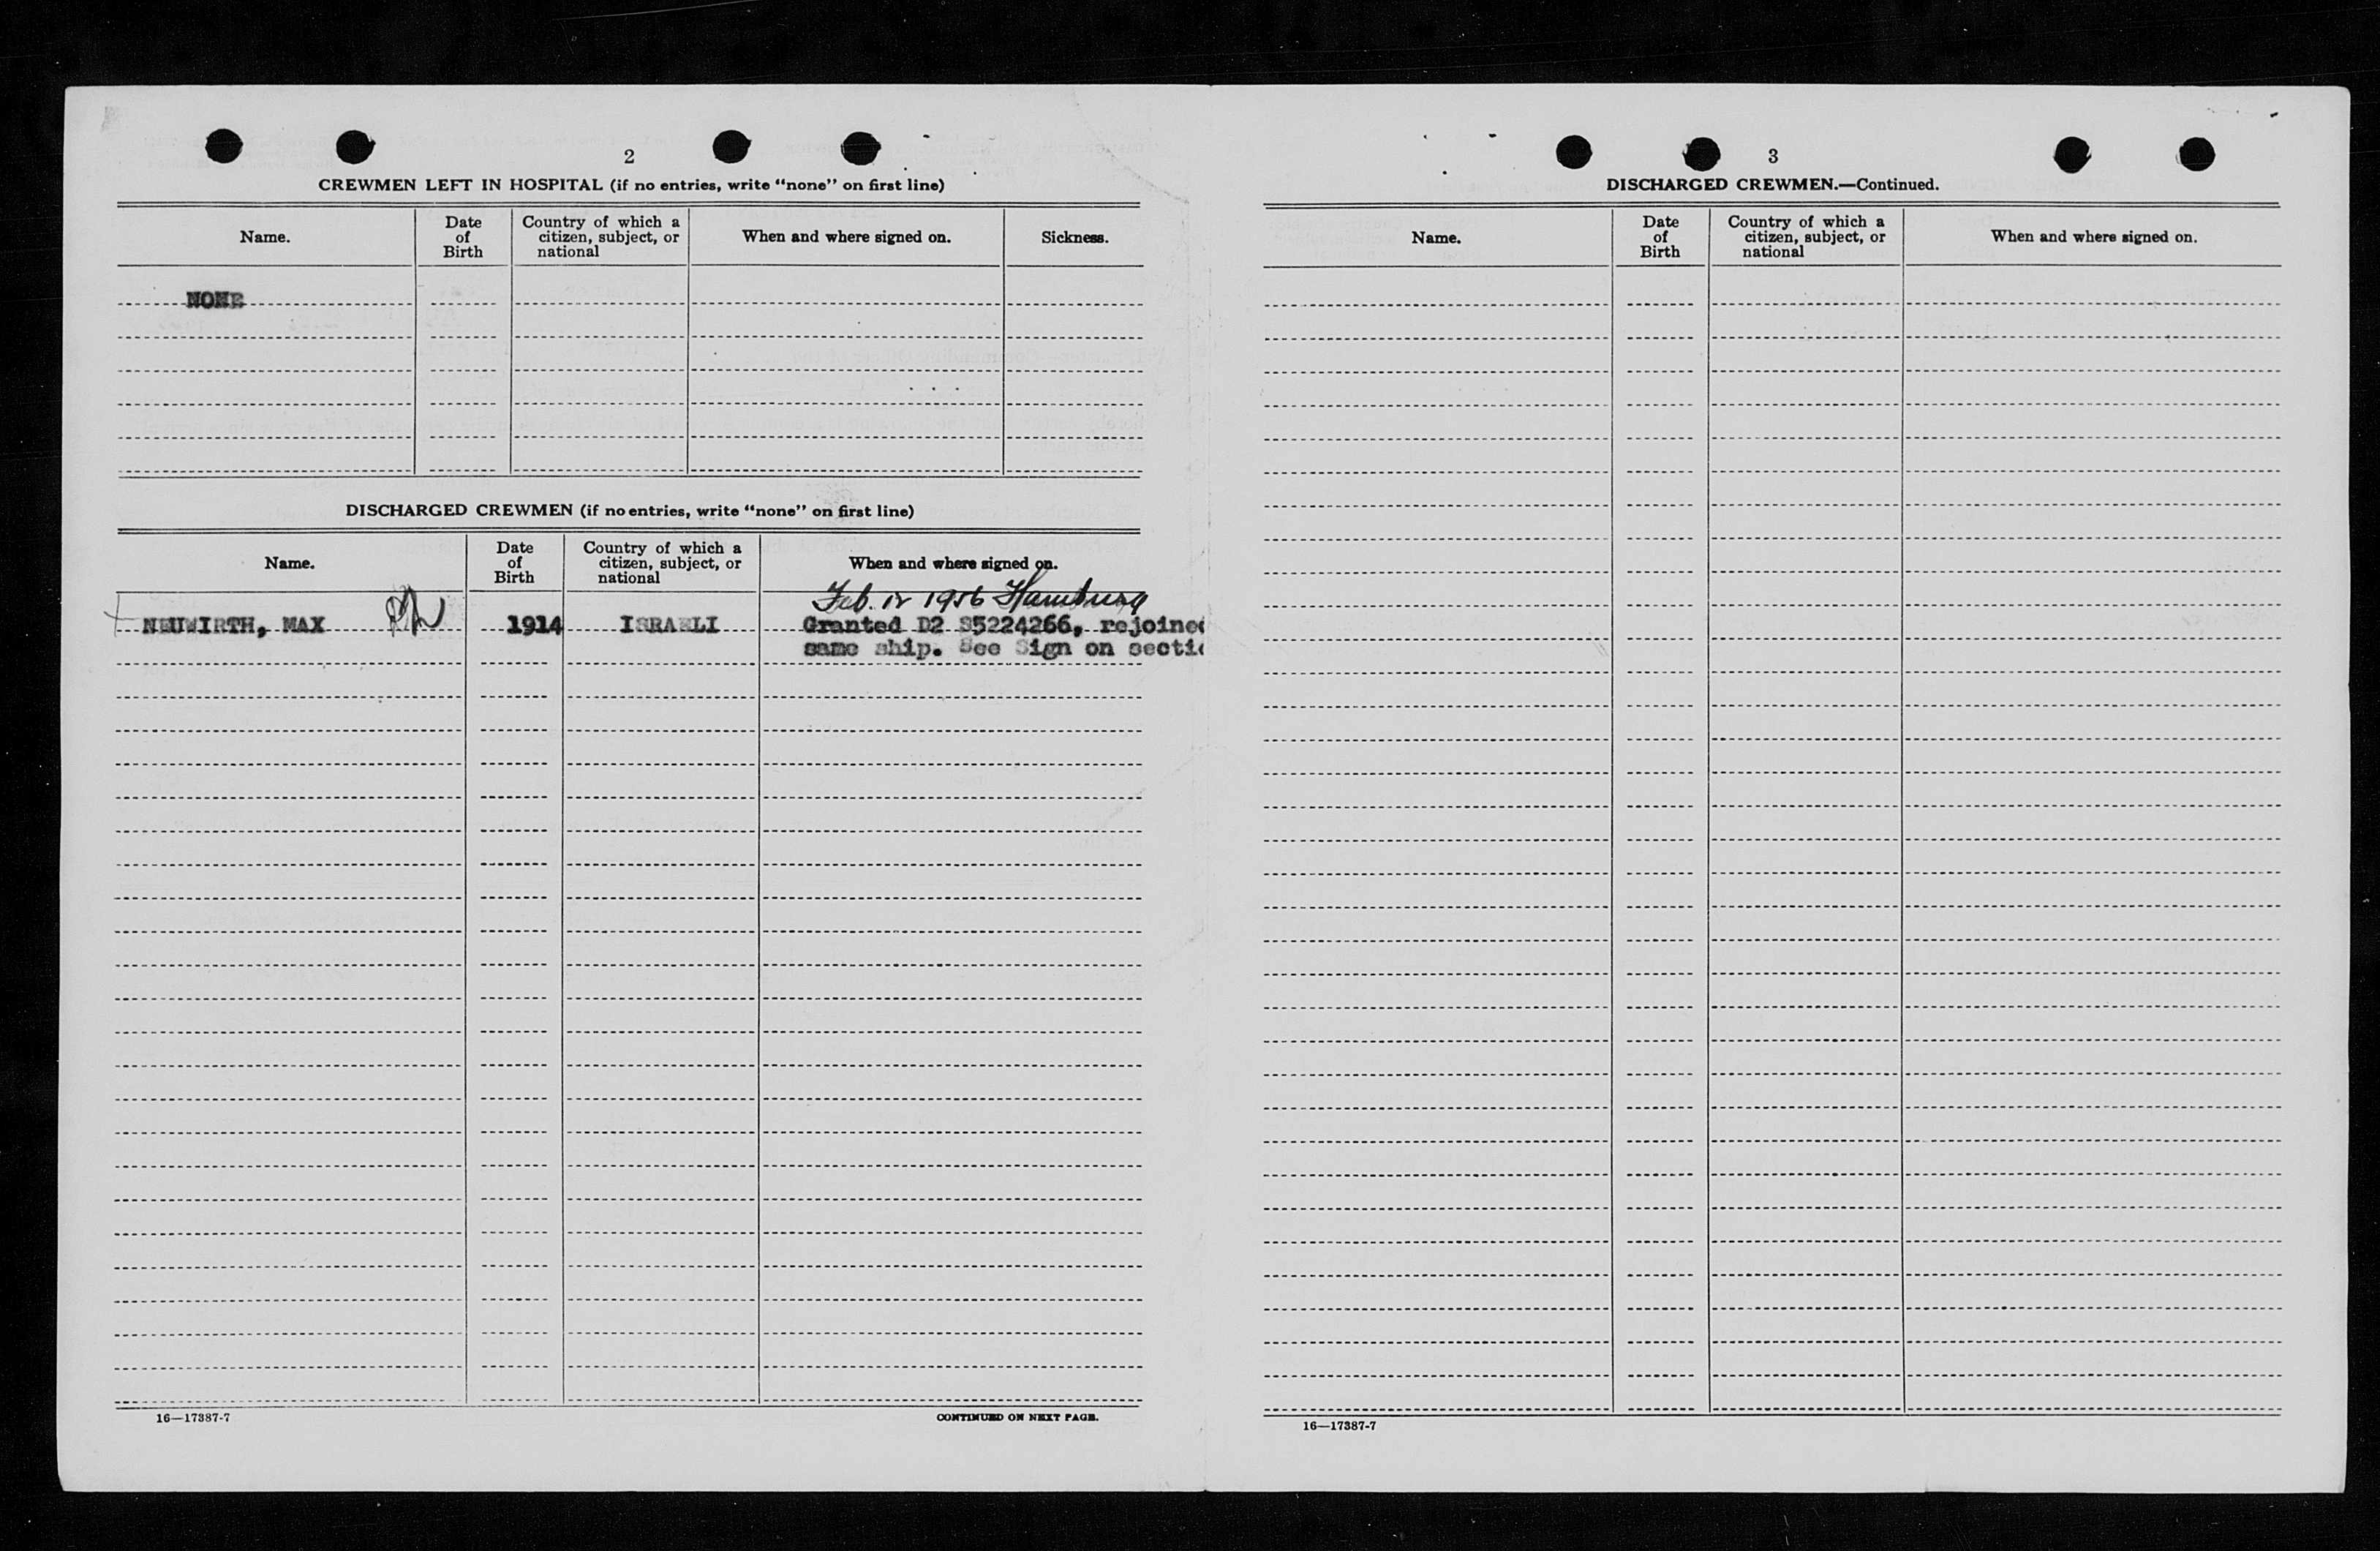 2
CREWMEN LEFT IN HOSPITAL (if no entries, write "none" on first line)
Name.
Date of Birth
Country of which a citizen, subject, or national
When and where signed on.
Sickness.
NONE
DISCHARGED CREWMEN (if no entries, write "none" on first line)
Name.
Date of Birth
Country of which a citizen, subject, or national
When and where signed on.
Feb. 12 1956 Hamburg
NEUWIRTH, MAX 1914 ISRAELI Granted D2 S5224266, rejoined
same ship. See Sign on secti
16—17387-7
CONTINUED ON NEXT PAGE.
3
DISCHARGED CREWMEN.—Continued.
Name.
Date of Birth
Country of which a citizen, subject, or national
When and where signed on.
16—17387-7